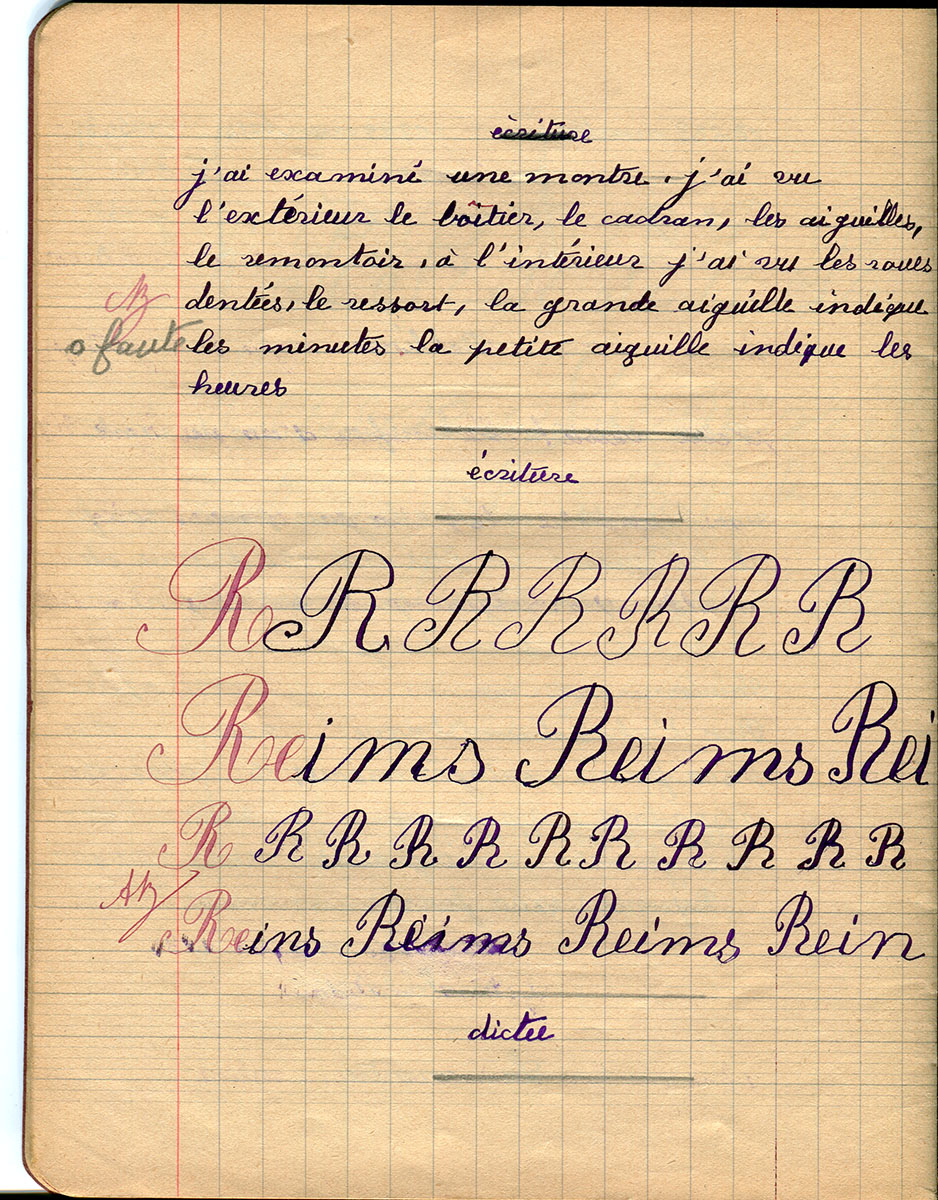 ècriture
j'ai examiné une montre. j'ai vu
l'extérieur le boîtier, le cadran, les aiguilles,
le remontoir, à l'intérieur j'ai vu les roues
dentées, le ressort, la grande aiguille indique
B
0 faute
les minutes la petite aiguille indique les
heures
écriture
R R R R R R R
Reims Reims Rei
R R R R R R R R R R R
AB
Reins Reims Reims Rein
dictée